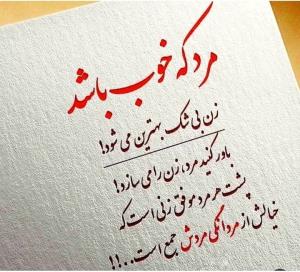 مرد که خوب باشد
زن بی شک بهترین می شود!
باور کنید مرد، زن را می سازد!
پشت هر مرد موفقی زنی است که
خیالش از مردانگی مردش جمع است...!!